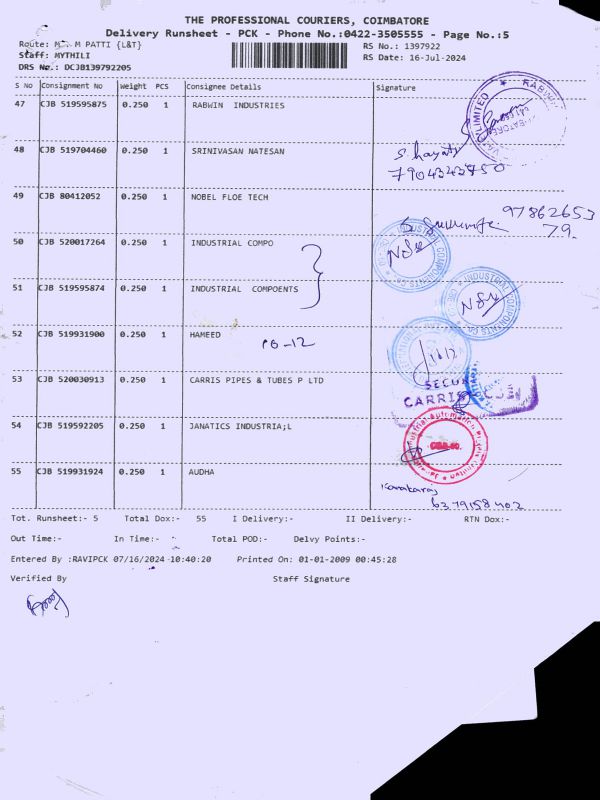 THE PROFESSIONAL COURIERS, COIMBATORE
Delivery Runsheet - PCK - Phone No.:0422-3505555 - Page No.:5
Route: M PATTI {L&T} RS No.: 1397922
Staff: MYTHILI RS Date: 16-Jul-2024
DRS No.: DCJB139792205
S No Consignment No Weight PCS Consignee Details Signature
47 CJB 519595875 0.250 1 RABWIN INDUSTRIES
48 CJB 519704460 0.250 1 SRINIVASAN NATESAN
7904343750
49 CJB 80412052 0.250 1 NOBEL FLOE TECH
97862653
79.
50 CJB 520017264 0.250 1 INDUSTRIAL COMPO
51 CJB 519595874 0.250 1 INDUSTRIAL COMPOENTS
52 CJB 519931900 0.250 1 HAMEED
PG-12
53 CJB 520030913 0.250 1 CARRIS PIPES & TUBES P LTD
SECUR
CARRIS
54 CJB 519592205 0.250 1 JANATICS INDUSTRIA;L
55 CJB 519931924 0.250 1 AUDHA
Kanakaraj
6379158402
Tot. Runsheet:- 5 Total Dox:- 55 I Delivery:- II Delivery:- RTN Dox:-
Out Time:- In Time:- Total POD:- Delvy Points:-
Entered By :RAVIPCK 07/16/2024 10:40:20 Printed On: 01-01-2009 00:45:28
Verified By Staff Signature